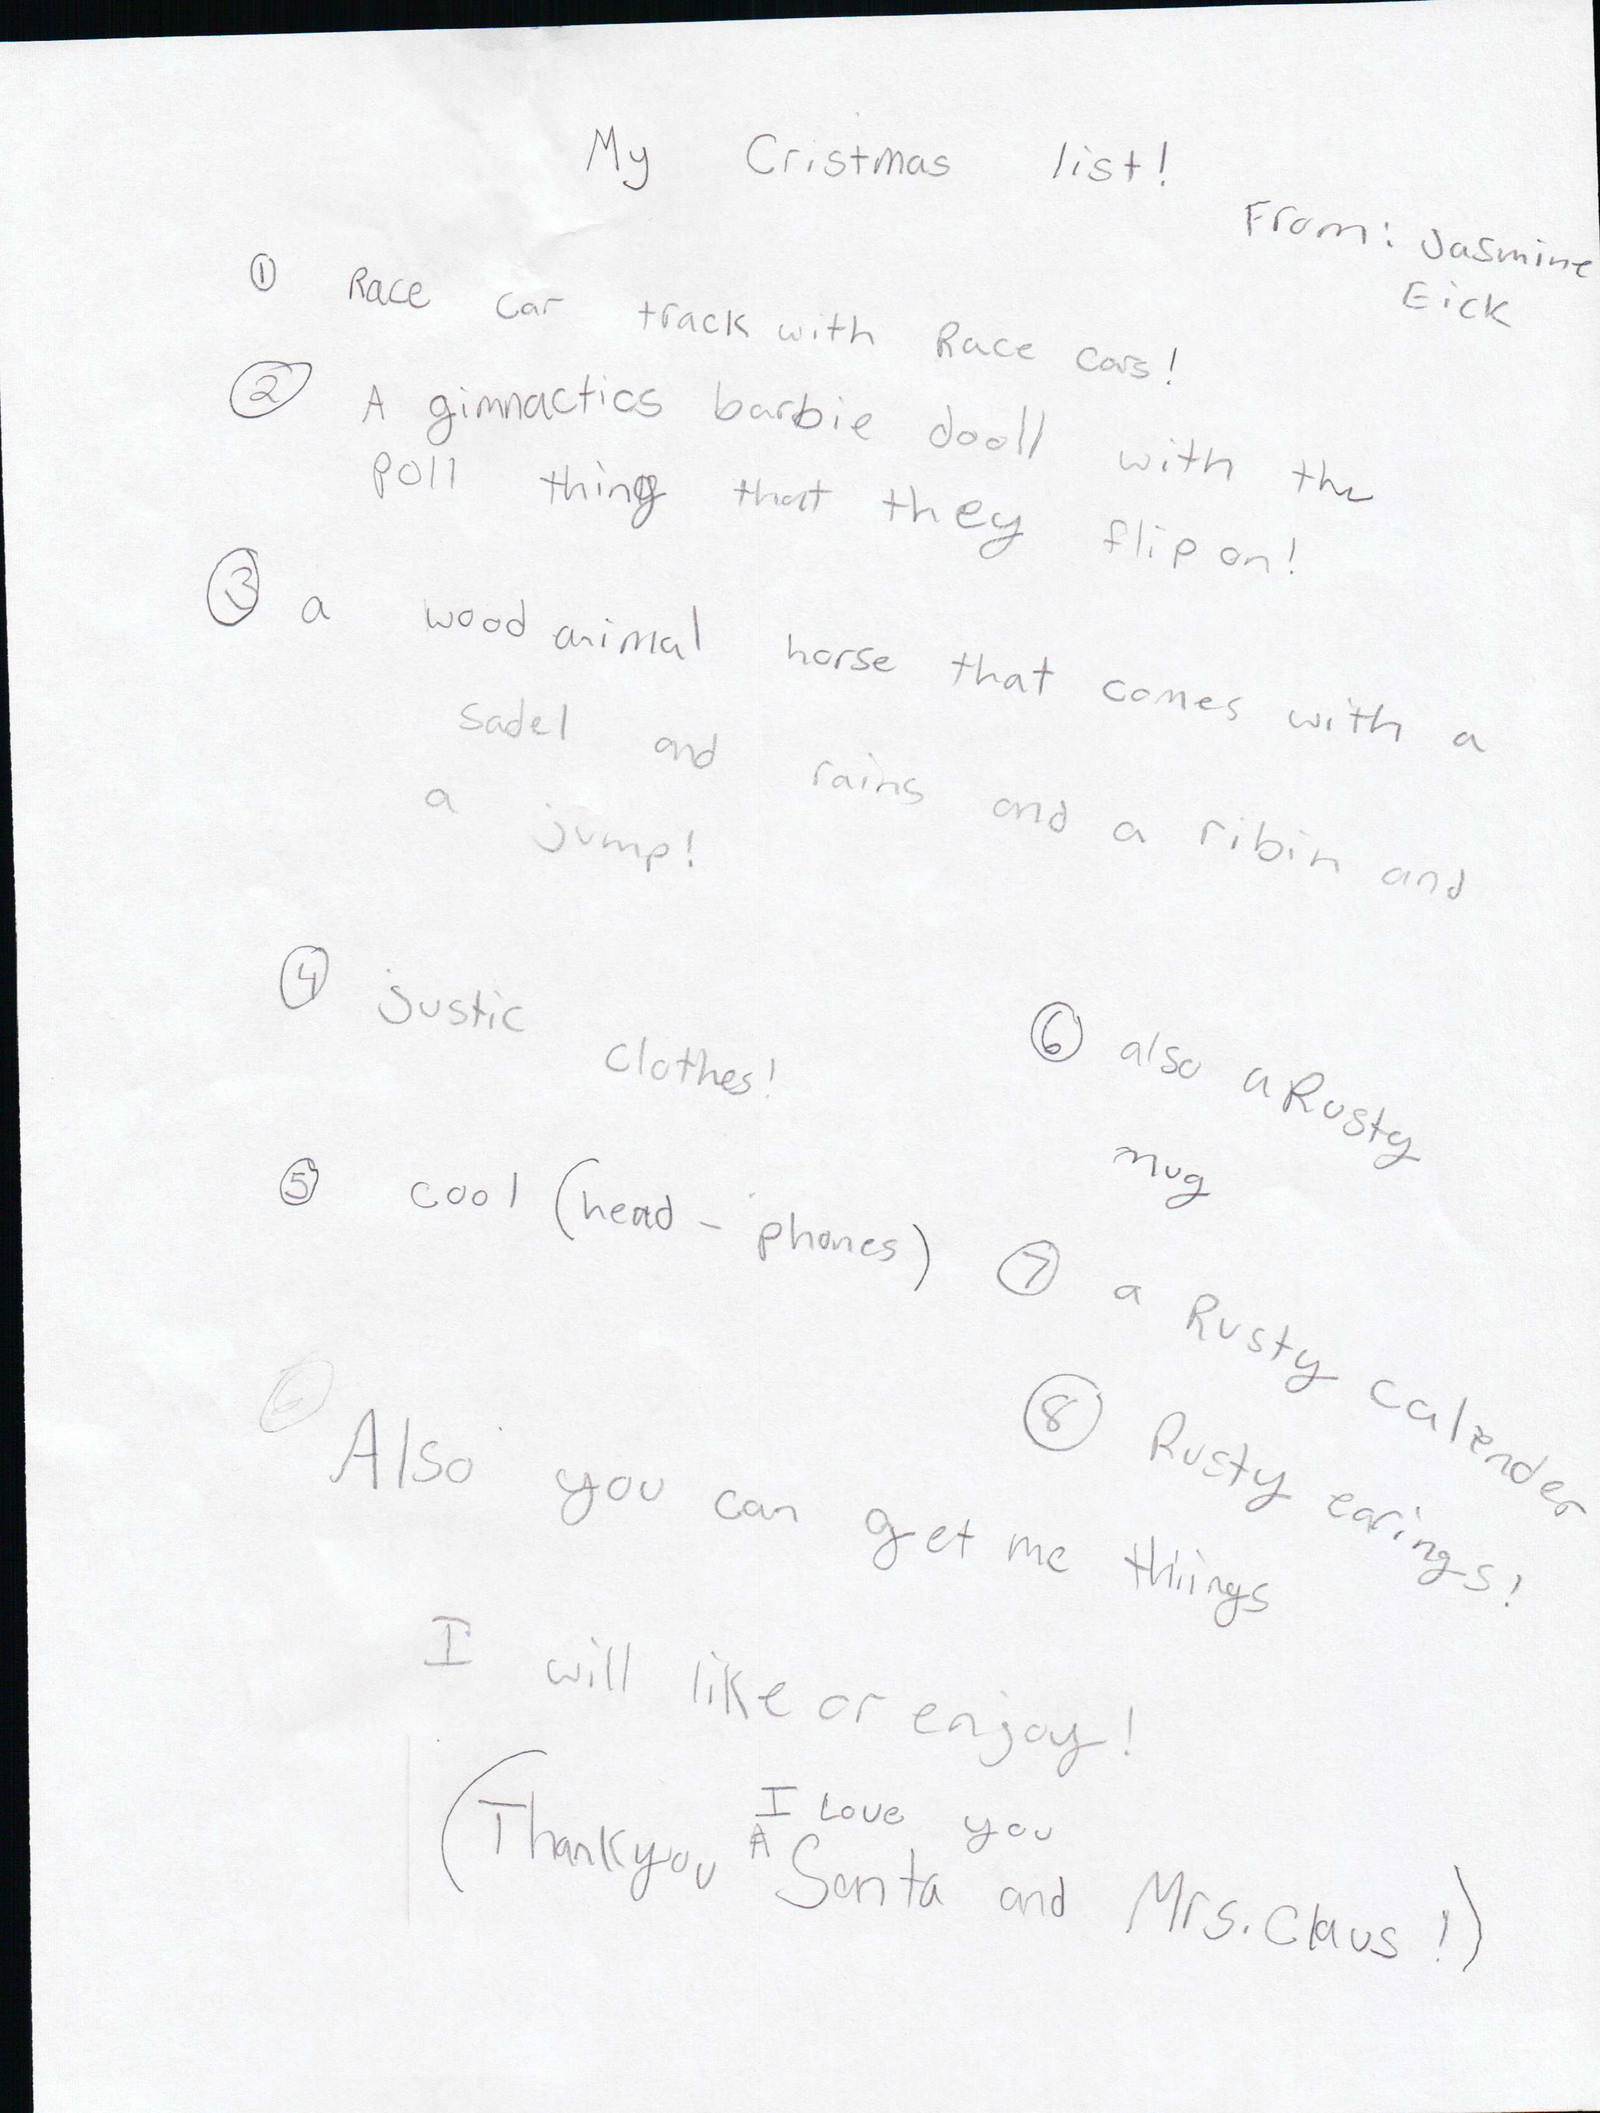 My Cristmas list!
From: Jasmine
Eick
① Race car track with Race cars!
② A gimnactics barbie dooll with the
poll thing that they flip on!
③ a wood animal horse that comes with a
sadel and rains and a ribin and
a jump!
④ justic
clothes!
⑤ cool (head - phones)
⑥ also a Rusty
mug
⑦ a Rusty calender
⑧ Rusty earings!
Also you can get me thiings
I will like or enjoy!
I Love you
(Thankyou ^ Santa and Mrs. Claus!)